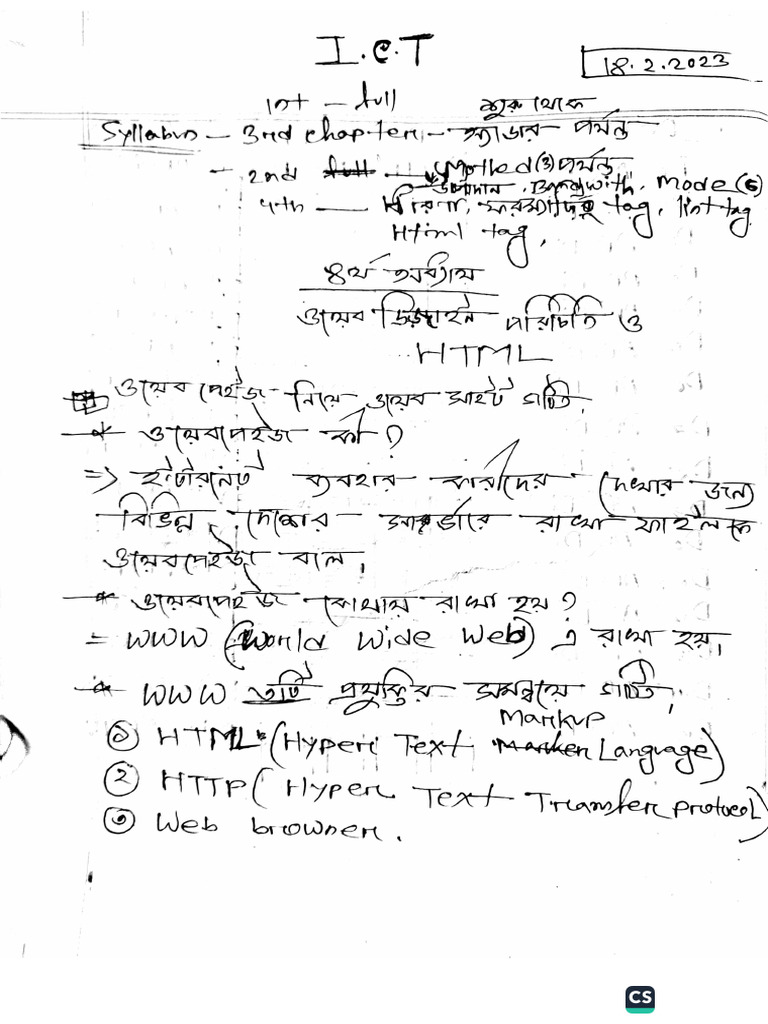 I.C.T
18.2.2023
1st - full শুরু থেকে
Syllabus - 3rd chapter - অ্যাডার পর্যন্ত
- 2nd full - Method (3) পর্যন্ত
উপাদান, Bandwith, Mode (6)
4th — tag, lint tag
Html tag,
৪র্থ অধ্যায়
ওয়েব ডিজাইন পরিচিতি ও
HTML
ওয়েব পেইজ নিয়ে ওয়েব সাইট গঠিত.
* ওয়েবপেইজ কী?
=> ইন্টারনেট ব্যবহার কারীদের দেখার জন্য
বিভিন্ন দেশের সার্ভারে রাখা ফাইলকে
ওয়েবপেইজ বলে,
* ওয়েবপেইজ কোথায় রাখা হয়?
= WWW (World Wide Web) এ রাখা হয়,
* WWW ৩টি প্রযুক্তির সমন্বয়ে গঠিত,
① HTML (Hyper Text Markup Language)
② HTTP (Hyper Text Transfer Protocol)
③ Web browner.
CS